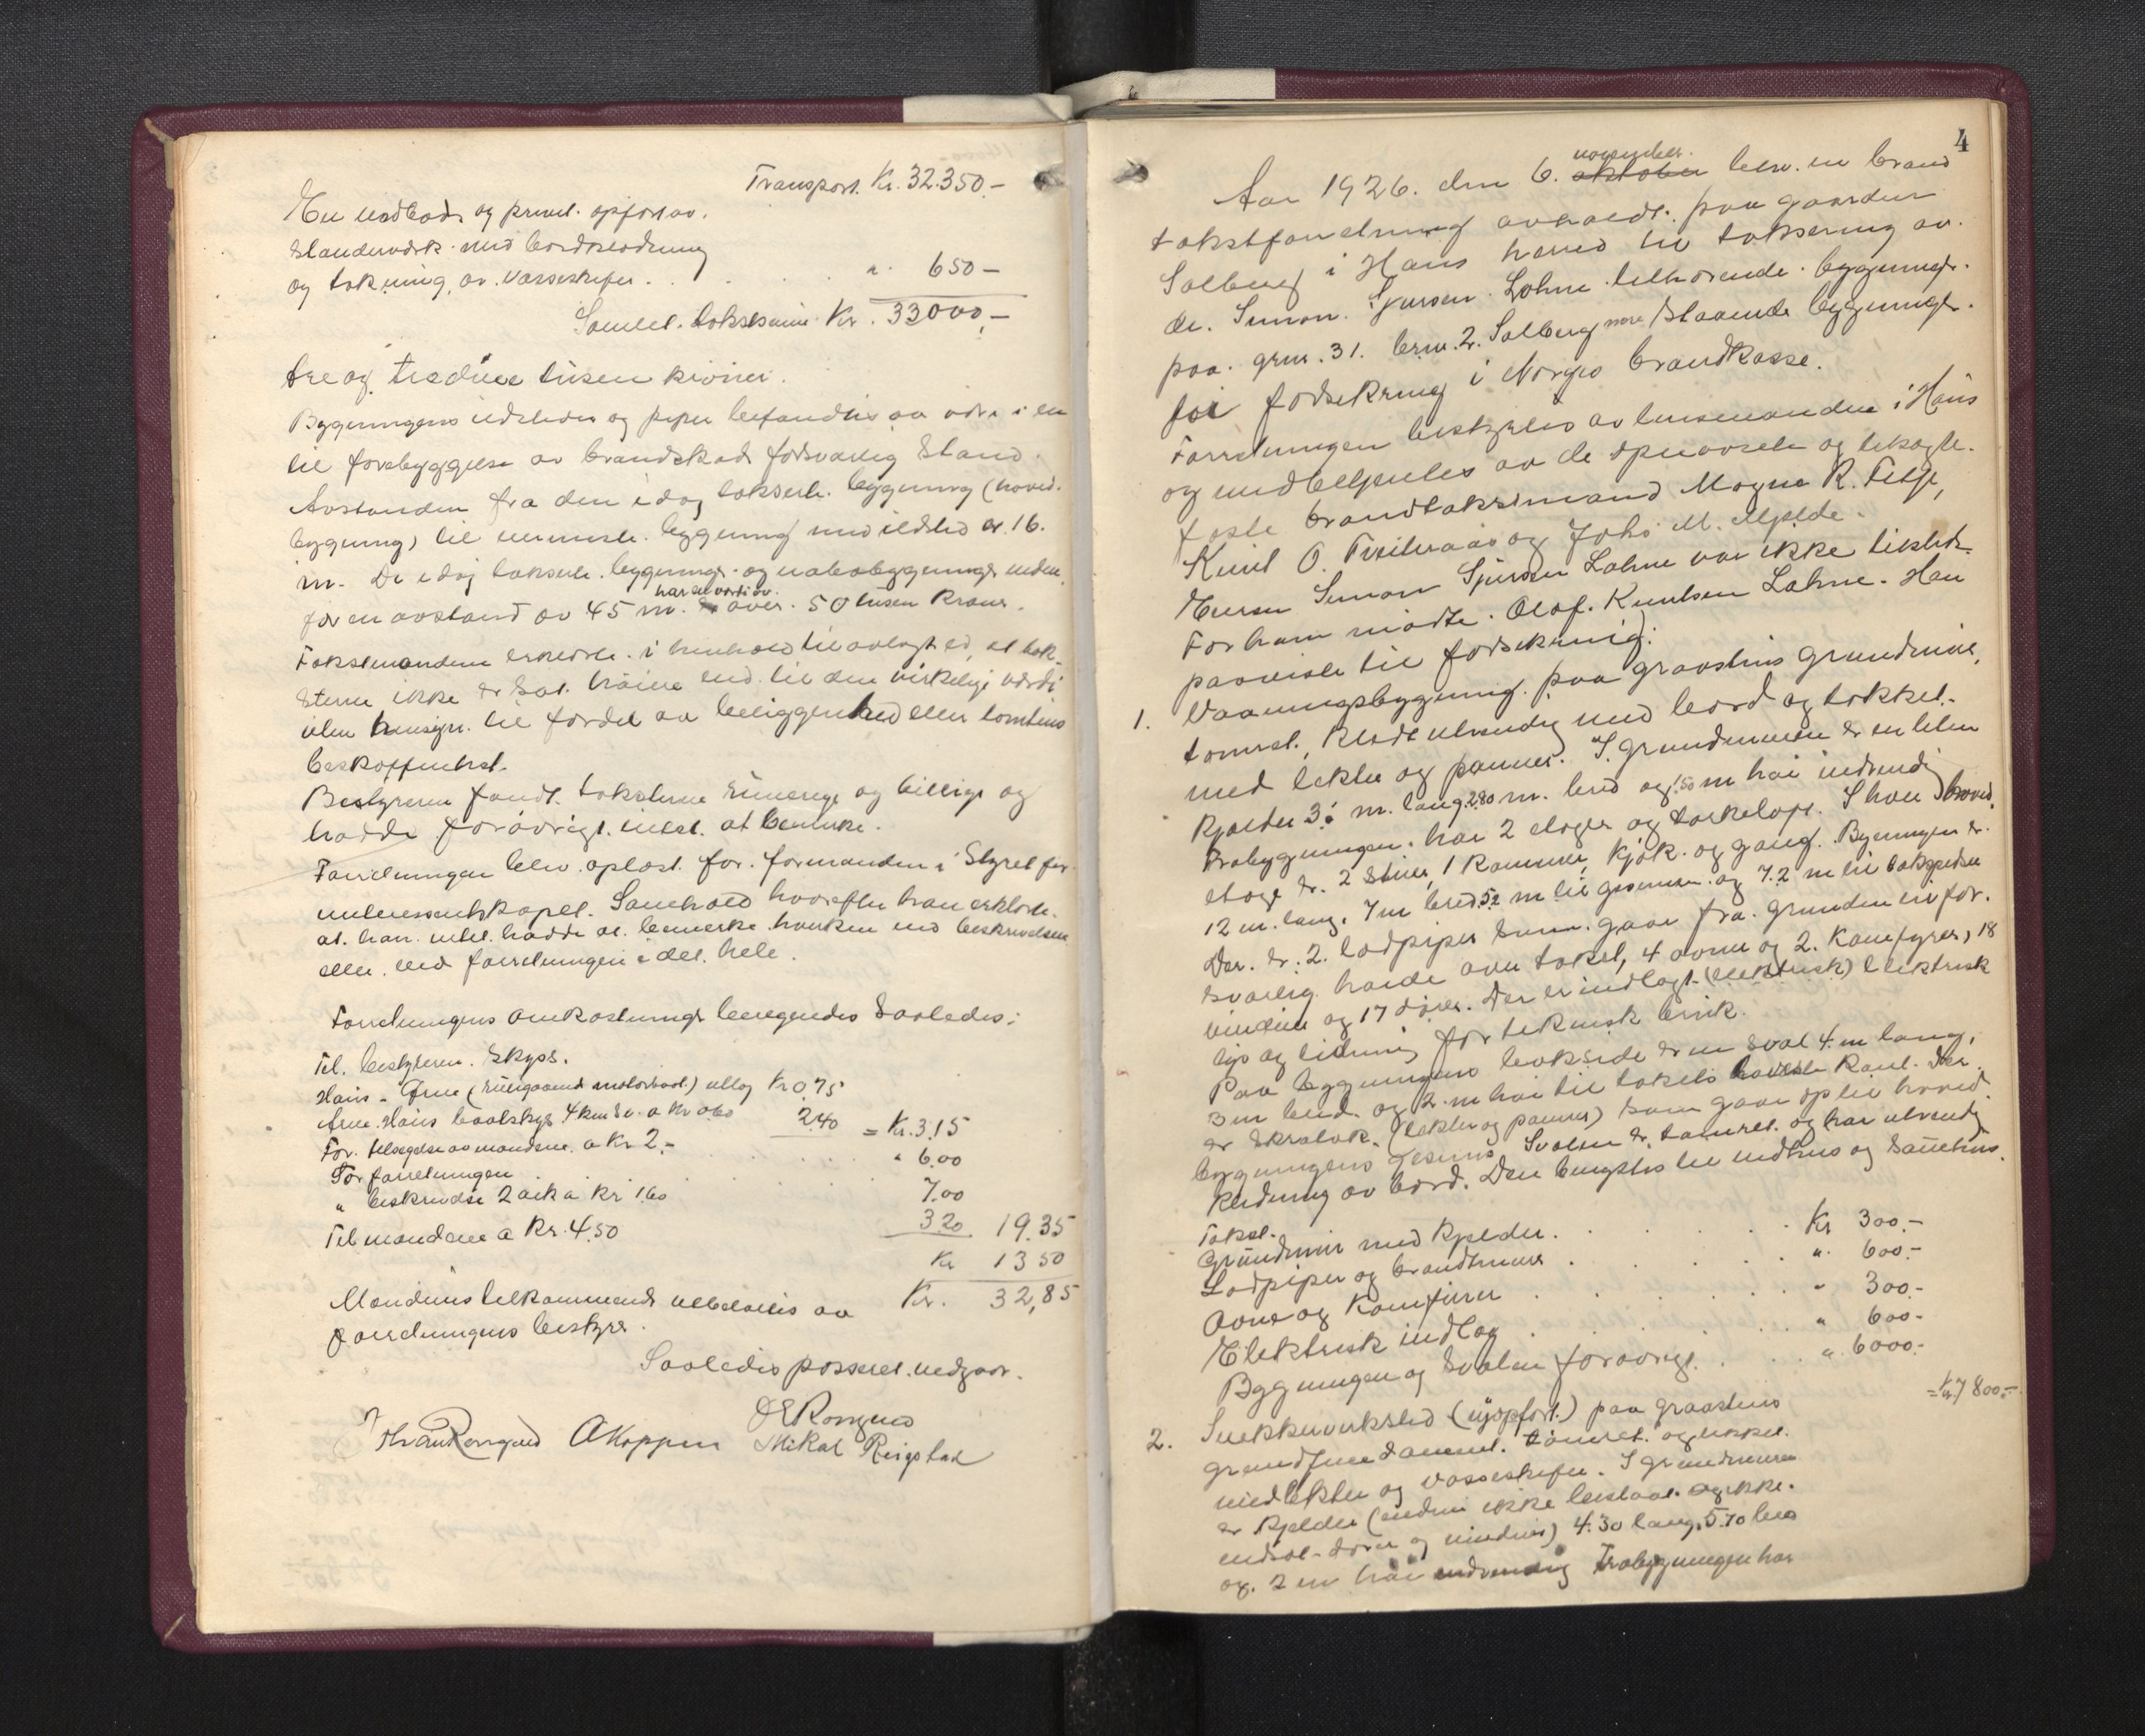 Transport. Kr. 32.350.–
En nødbod og privet. opført av.
standerverk. med bordklædning
og tækning av Vosseskifer. . . . ". 650 –
Samlet. takstsum Kr. 33000,–
tre og tredive tusen kroner.
Bygningens ildsteder og piper befandtes at være i en
til forebyggelse av brandskade forsvarlig stand.
Avstanden fra den idag takserte. bygning (hoved.
bygning) til nærmeste. bygning med ildsted er 16.
m. De idag takserte. bygninger og nabobygninger inden.
for en avstand av 45 m. har en værdi av over. 50 tusen kroner.
Takstmændene erklærte. i henhold til avlagt ed, at tak-
sterne ikke er sat. høiere end. til den virkelige værdi
uten hensyn. til fordel av beliggenhed eller tomtens
beskaffenhet.
Bestyreren fandt. taksterne rimelige og billige og
hadde forøvrigt. intet. at bemerke.
Forretningen blev. oplæst. for. formanden i Styret for
Samehold hvorefter han erklærte.
at. han. intet. hadde at. bemerke. hverken ved beskrivelsen
eller. ved forretningen i det. hele.
Forretningens omkostninger beregnedes saaledes:
Til. bestyreren. Skyss.
Haus - Arne (rutegaaende motorbaat.) utlæg Kr 0.75
Arne. Haus baatskyss 4 km a Kr 0.60 2.40 = Kr. 3.15
For. tilsigelse av mændene. a Kr 2.- . . . . " 6.00
For forretningen . . . . 7.00
" beskrivelse 2 ark a kr 1.60 3.20 19.35
Til mændene a Kr. 4.50 Kr 13 50
Kr. 32,85
Mændenes tilkommende utbetales av
forretningens bestyrer.
Saaledes passeret. vedgaar.
A Koppen
Mikal Ringstad
4
Aar 1926. den 6. november. oktober blev. en brand
takstforretning avholdt. paa gaarden
Solberg i Haus herred til taksering av.
de. Simon. Sjursen. Lohne tilhørende. bygninger.
paa. grnr. 31. brnr. 2. Solberg staaende bygninger.
for forsikring i Norges brandkasse.
Forretningen bestyrtes av lensmanden i Haus
og medbetjentes av de opnævnte og tilsagte.
faste brandtakstmænd Magne R. Tetlje,
Knut O. og Johs M. Mjelde.
Eieren Simon Sjursen Lohne var ikke tilstede.
For ham møtte. Olaf. Knutsen Lohne. Han
paaviste til forsikring:
1. Vaaningsbygning. paa graastens grundmur,
tømret., klædt utvendig med bord og tækket.
med lekter og panner. I grundmuren er en liten
kjælder 3.– m. lang 2.80 m. bred og 1.80 m høi indvendig
Træbygningen. har 2 etager og mørkeloft. I hver hoved.
etage er. 2 stuer, 1 kammer, kjøk. og gang. Bygningen er.
12 m. lang. 7 m bred 5.2 m til gesimsen. og 7.2 m til takspidsen
Der. er. 2. lødpiper som. gaar fra. grunden i for.
svarlig høide over taket, 4 ovner og 2. komfyrer, 18
vinduer og 17 dører. Der er indlagt. (elektrisk) elektrisk
lys og ledning for teknisk bruk.
Paa bygningens bakside er en sval 4. m lang,
3 m bred. og 2. m høi til takets laveste kant. Der.
er skraatak. (lekter og panner) som gaar op til hoved.
bygningens gesims Svalen er. tømret. og har utvendig
klædning av bord. Den benyttes til vedhus og
Takst.
Grundmur med kjelder. . . . . Kr 300.–
Lødpiper og brandmurer . . . . ". 600.–
Ovner og komfyrer . . . . " 300.–
Elektrisk indlæg . . . . " 600.–
Bygningen og svalen forøvrigt. . . . " 6000.–
= Kr. 7800.–
2. Snekkerverksted (nyopført.) paa graastens
grundfundament. tømret. og tækket.
med lekter og vosseskifer. I grundmuren
er kjelder (endnu ikke og ikke.
indsat- dører og vinduer) 4.30 lang, 5.70 bred
og. 2 m høi indvendig Træbygningen har